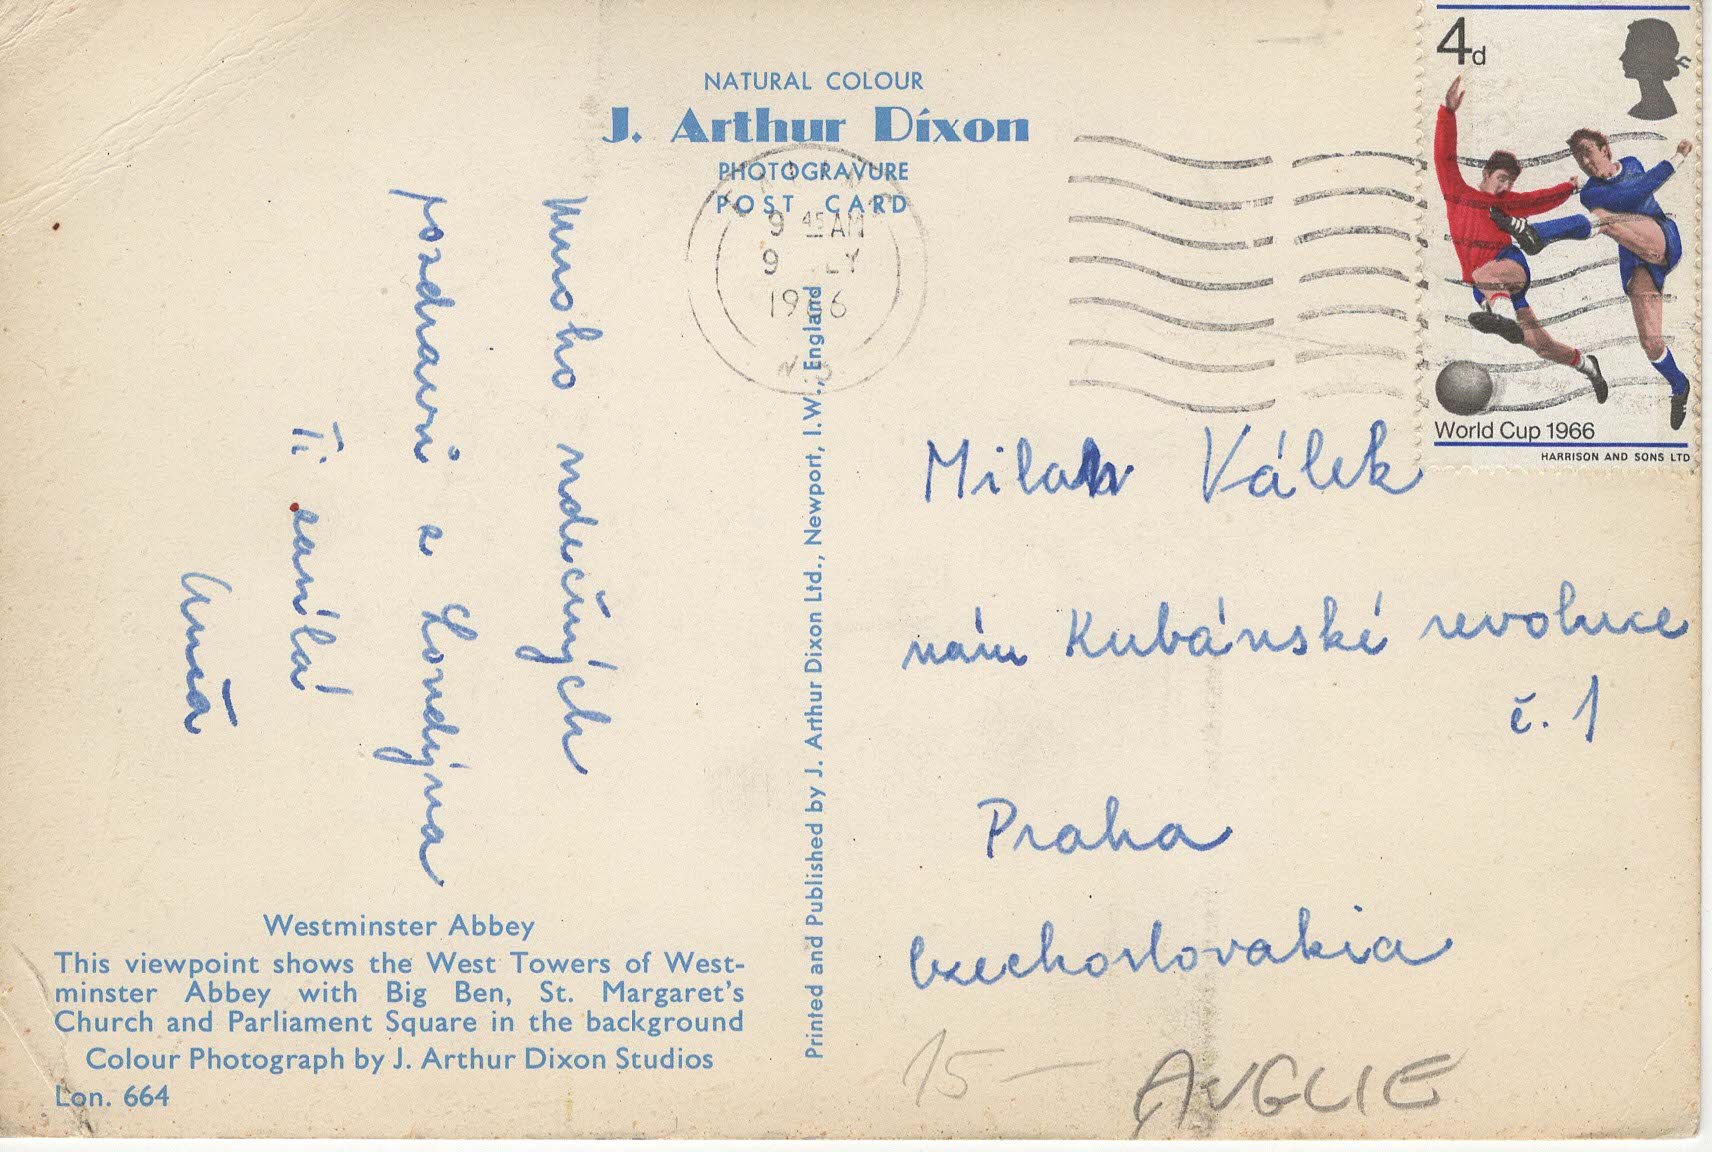 NATURAL COLOUR
J. Arthur Dixon
PHOTOGRAVURE
POST CARD
9 45 AM
9 LY
1966
N.
4d
World Cup 1966
HARRISON AND SONS LTD
Mnoho srdečných
pozdravů z Londýna
Ti zasílá
Printed and Published by J. Arthur Dixon Ltd., Newport, I.W., England
Milan Válek
nám Kubánské revoluce
č. 1
Praha
Czechoslovakia
Westminster Abbey
This viewpoint shows the West Towers of West-
minster Abbey with Big Ben, St. Margaret's
Church and Parliament Square in the background
Colour Photograph by J. Arthur Dixon Studios
Lon. 664
15 —
ANGLIE